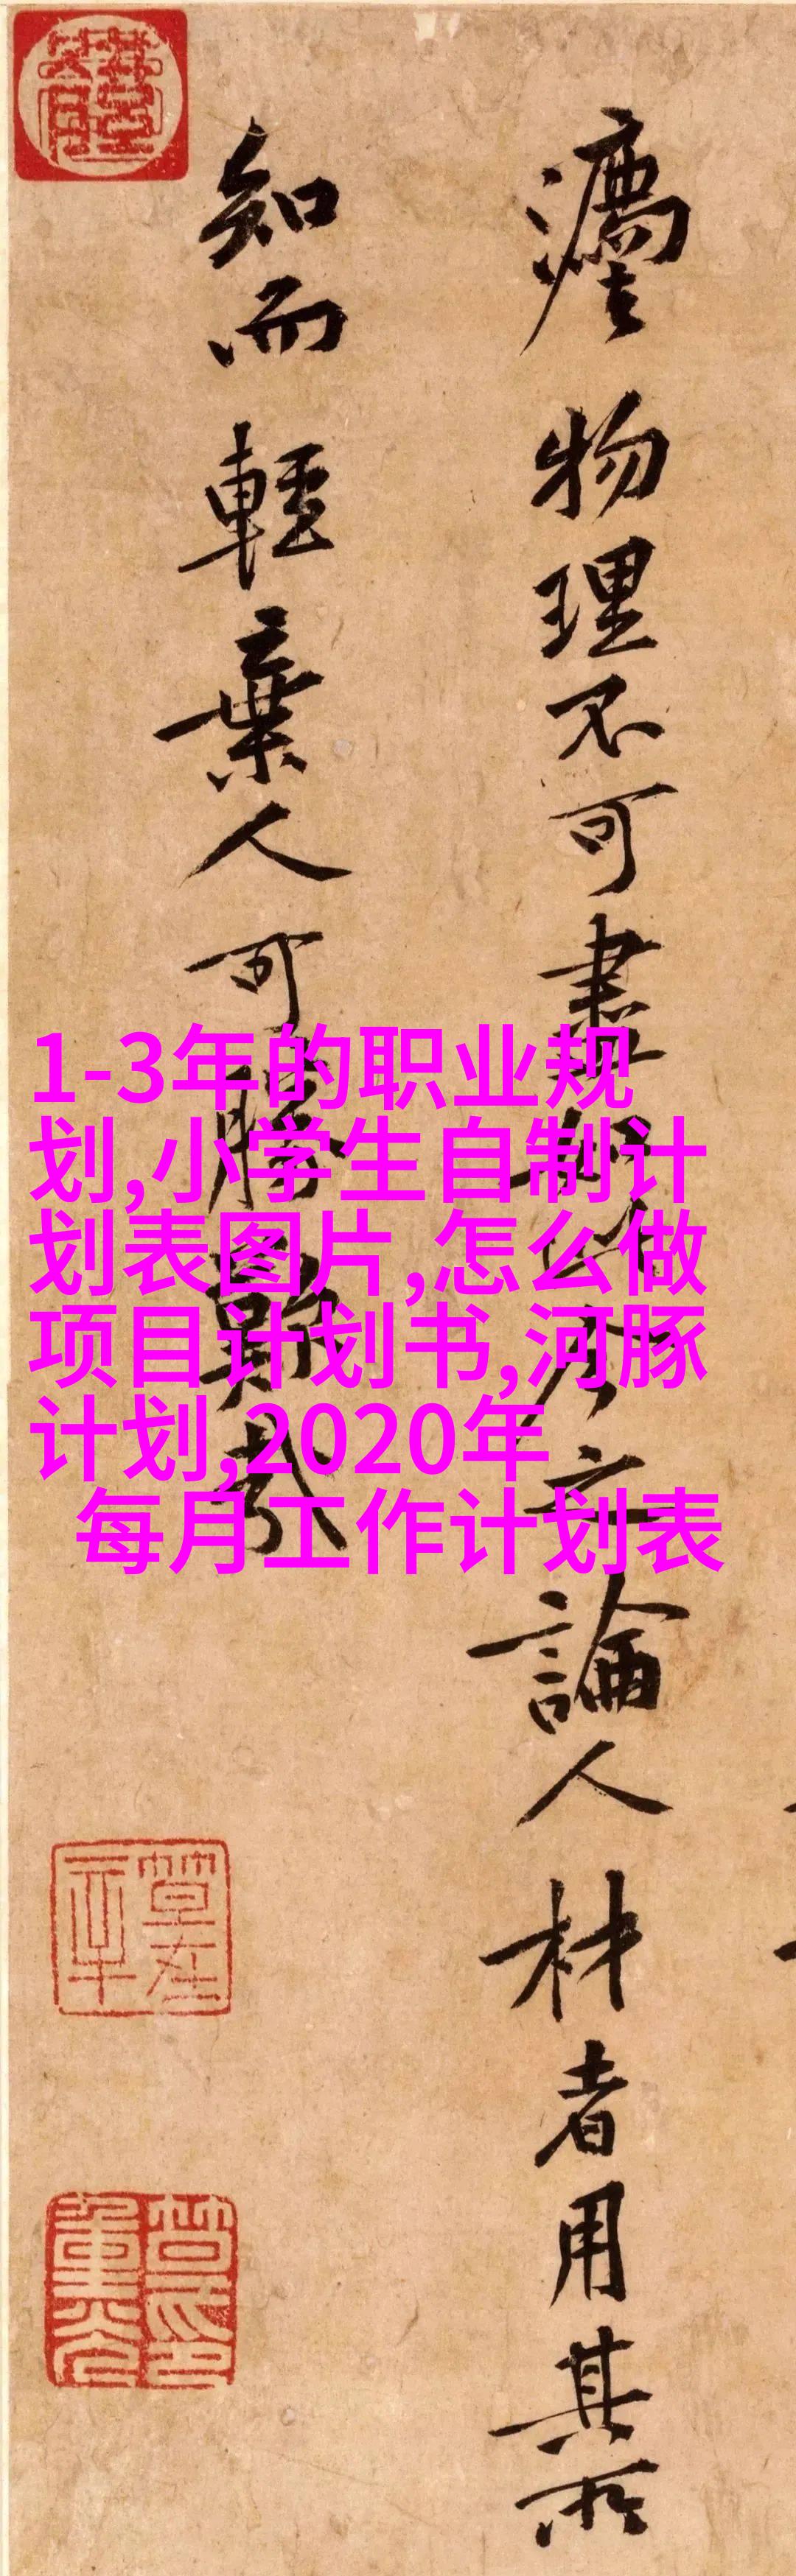 物理不可盡如此 論人材者用其所
知而輕棄人可勝歎哉
1-3年的职业规
划,小学生自制计
划表图片,怎么做
项目计划书,河豚
计划,2020年
每月工作计划表